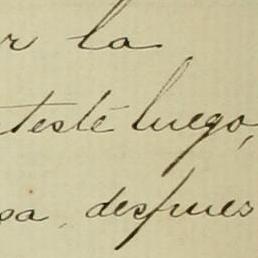 r la
testé luego,
sa, despues